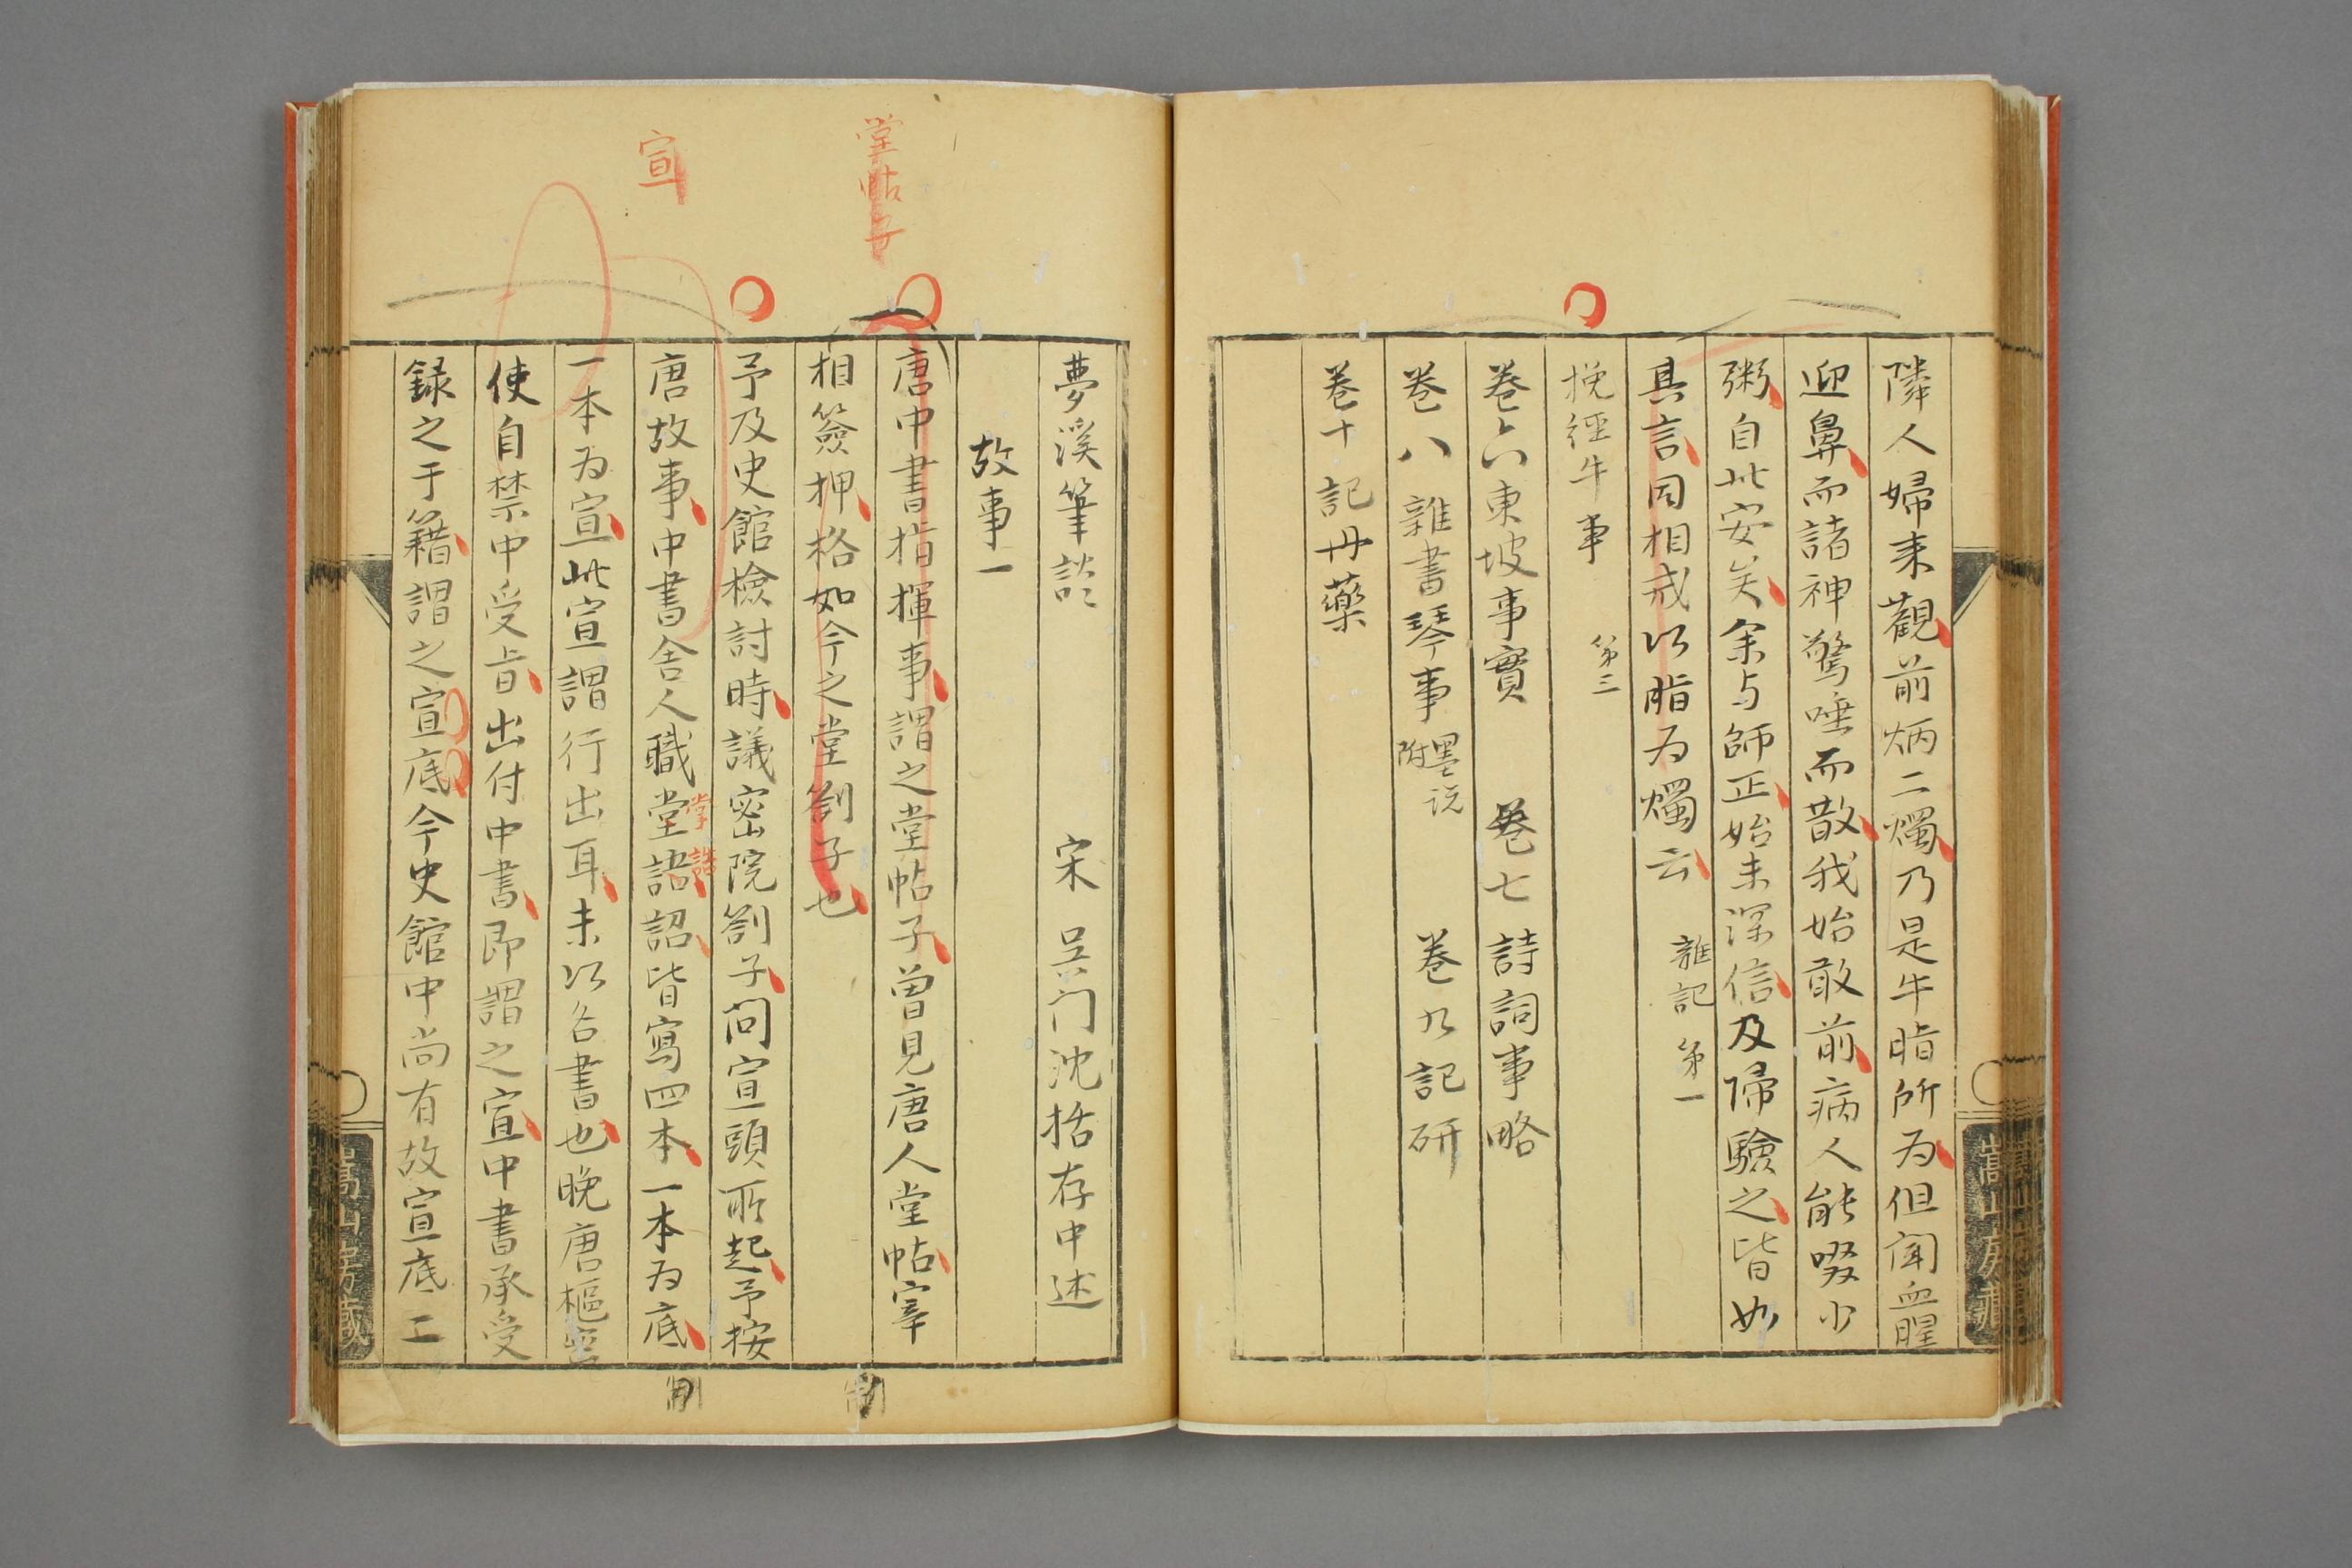 隣人婦来觀前炳二燭乃是牛脂所为但闻血腥
迎鼻而諸神驚唾而散我始敢前病人能啜少
粥自此安矣余与師正始未深信及帰驗之皆如
具言因相戒以脂为燭云 雜記第一
挽經牛事 第三
卷六東坡事實 卷七詩詞事略
卷八雜書琴事 墨说附 卷九記研
卷十記丹藥
嵩山房藏
堂帖子
宣
夢溪筆談 宋 吴门沈括存中述
故事一
唐中書指揮事謂之堂帖子曽見唐人堂帖宰
相簽押格如今之堂劄子也
予及史館檢討時議密院劄子问宣頭所起予按
唐故事中書舍人職堂語詔皆寫四本一本为底
掌誥
一本为宣此宣謂行出耳未以名書也晚唐樞密
使自禁中受旨出付中書即謂之宣中書承受
録之于籍謂之宣底今史館中尚有故宣底二
嵩山房藏